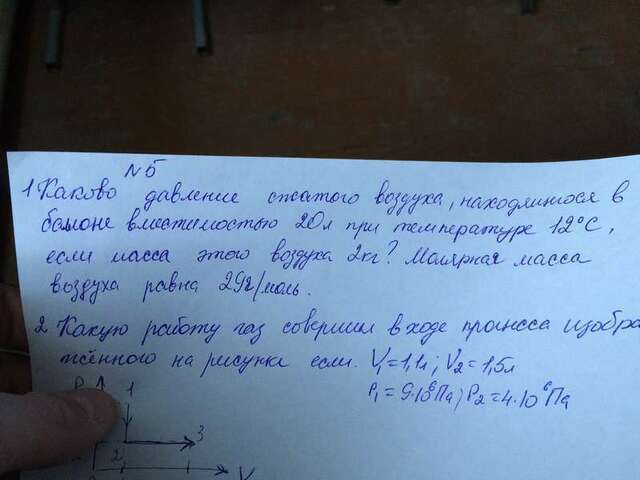 N 5
1 Каково давление сжатого воздуха, находящегося в
балоне вместимостью 20л при температуре 12°С,
если масса этого воздуха 2кг? Молярная масса
воздуха равна 29г/моль.
2. Какую работу газ совершил в ходе процесса изобра
жённого на рисунке если. V₁=1,1л; V₂=1,5л
P₁=9·10⁶Па; P₂=4·10⁶Па
P 1
2 3
V